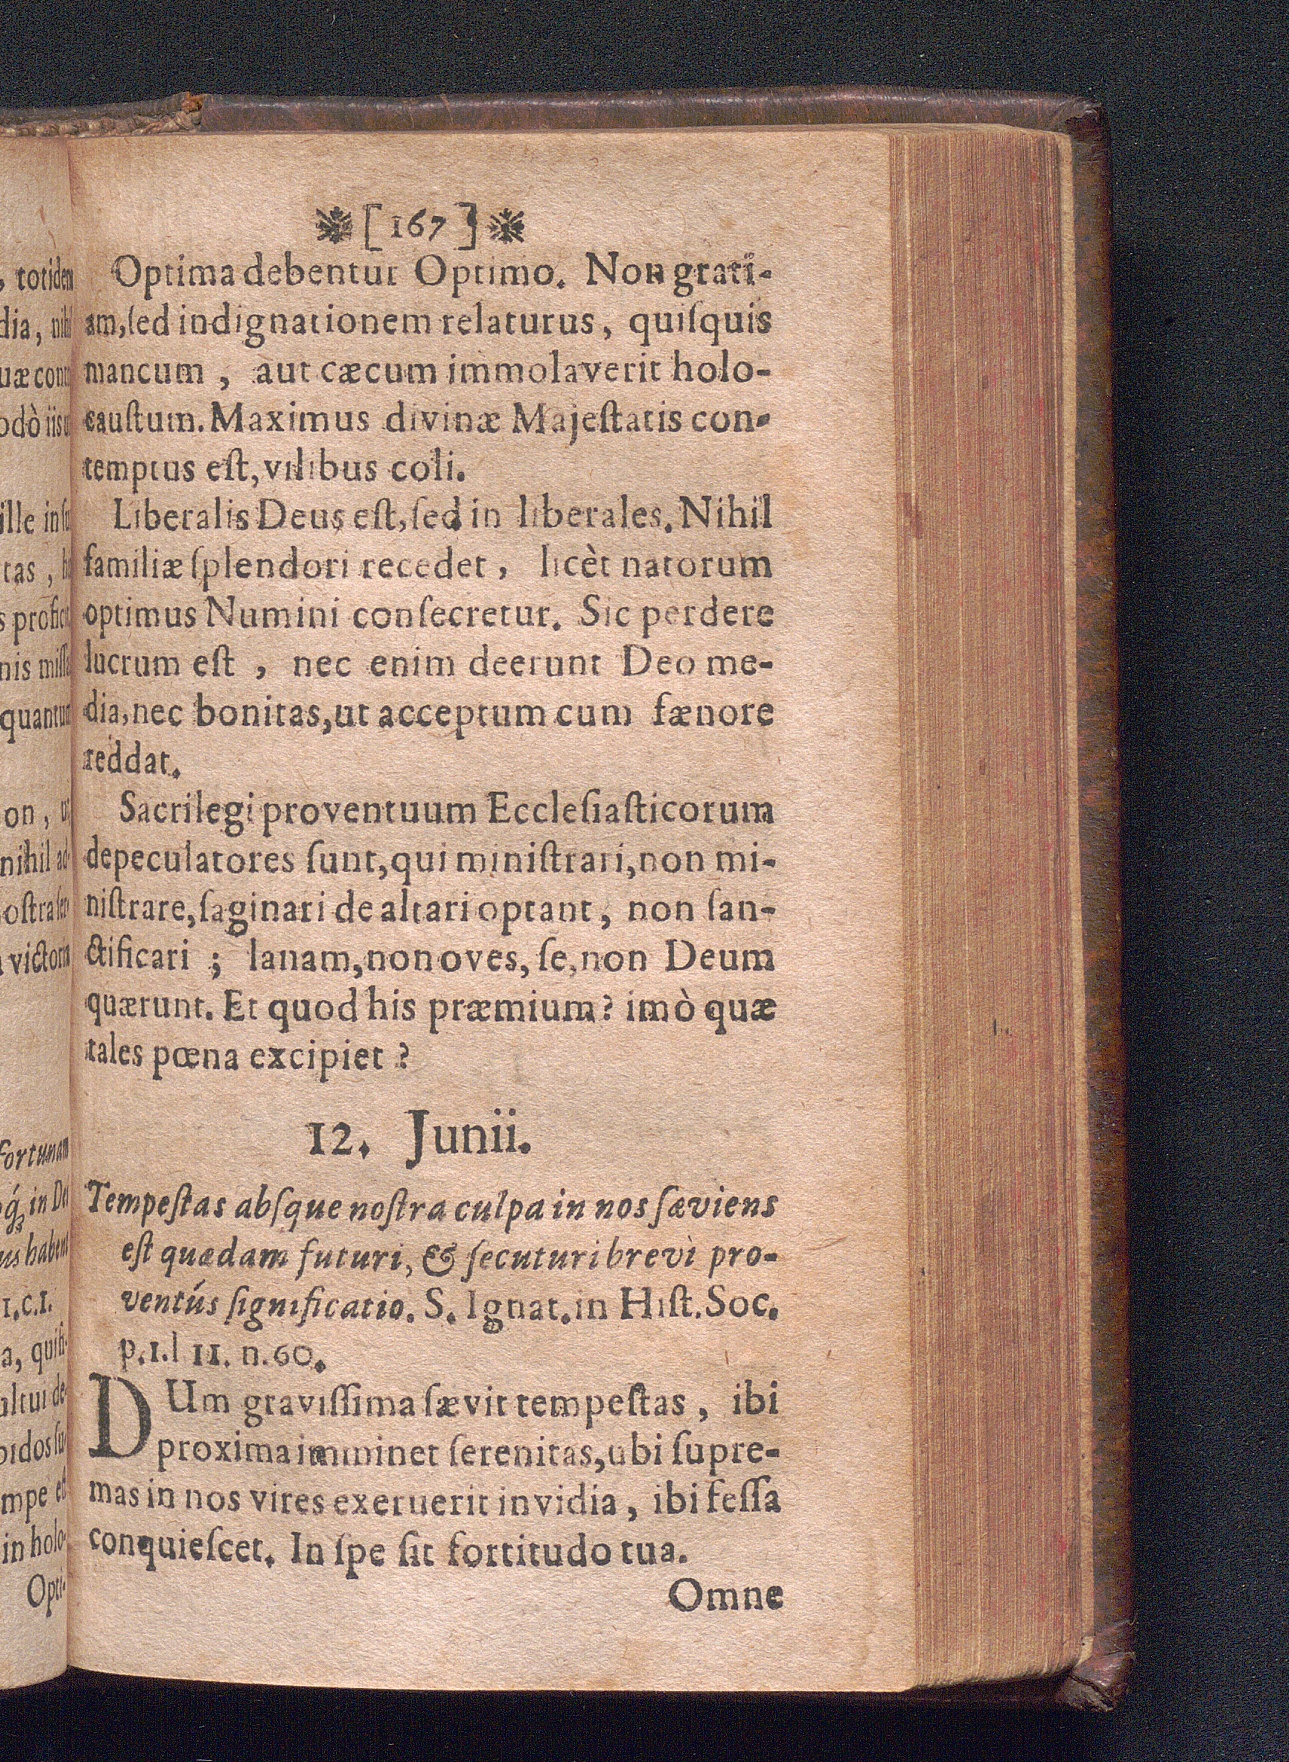 [167]
Optima debentur Optimo. Non grati-
am, ſed indignationem relaturus, quiſquis
mancum, aut cæcum immolaverit holo-
cauſtum. Maximus divinæ Majeſtatis con-
temptus eſt, vilibus coli.
Liberalis Deus eſt, ſed in liberales. Nihil
familiæ ſplendori recedet, licèt natorum
optimus Numini conſecretur. Sic perdere
lucrum eſt, nec enim deerunt Deo me-
dia, nec bonitas, ut acceptum cum fænore
reddat.
Sacrilegi proventuum Eccleſiaſticorum
depeculatores ſunt, qui miniſtrari, non mi-
niſtrare, ſaginari de altari optant, non ſan-
ctificari; lanam, non oves, ſe, non Deum
quærunt. Et quod his præmium? imò quæ
tales pœna excipiet?
12. Junii.
Tempeſtas abſque noſtra culpa in nos ſæviens
eſt quædam futuri, & ſecuturi brevì pro-
ventús ſignificatio. S. Ignat. in Hiſt. Soc.
p.1.l 11. n.60.
DUm graviſſima ſævit tempeſtas, ibi
proxima imminet ſerenitas, ubi ſupre-
mas in nos vires exeruerit invidia, ibi feſſa
conquieſcet. In ſpe ſit fortitudo tua.
Omne